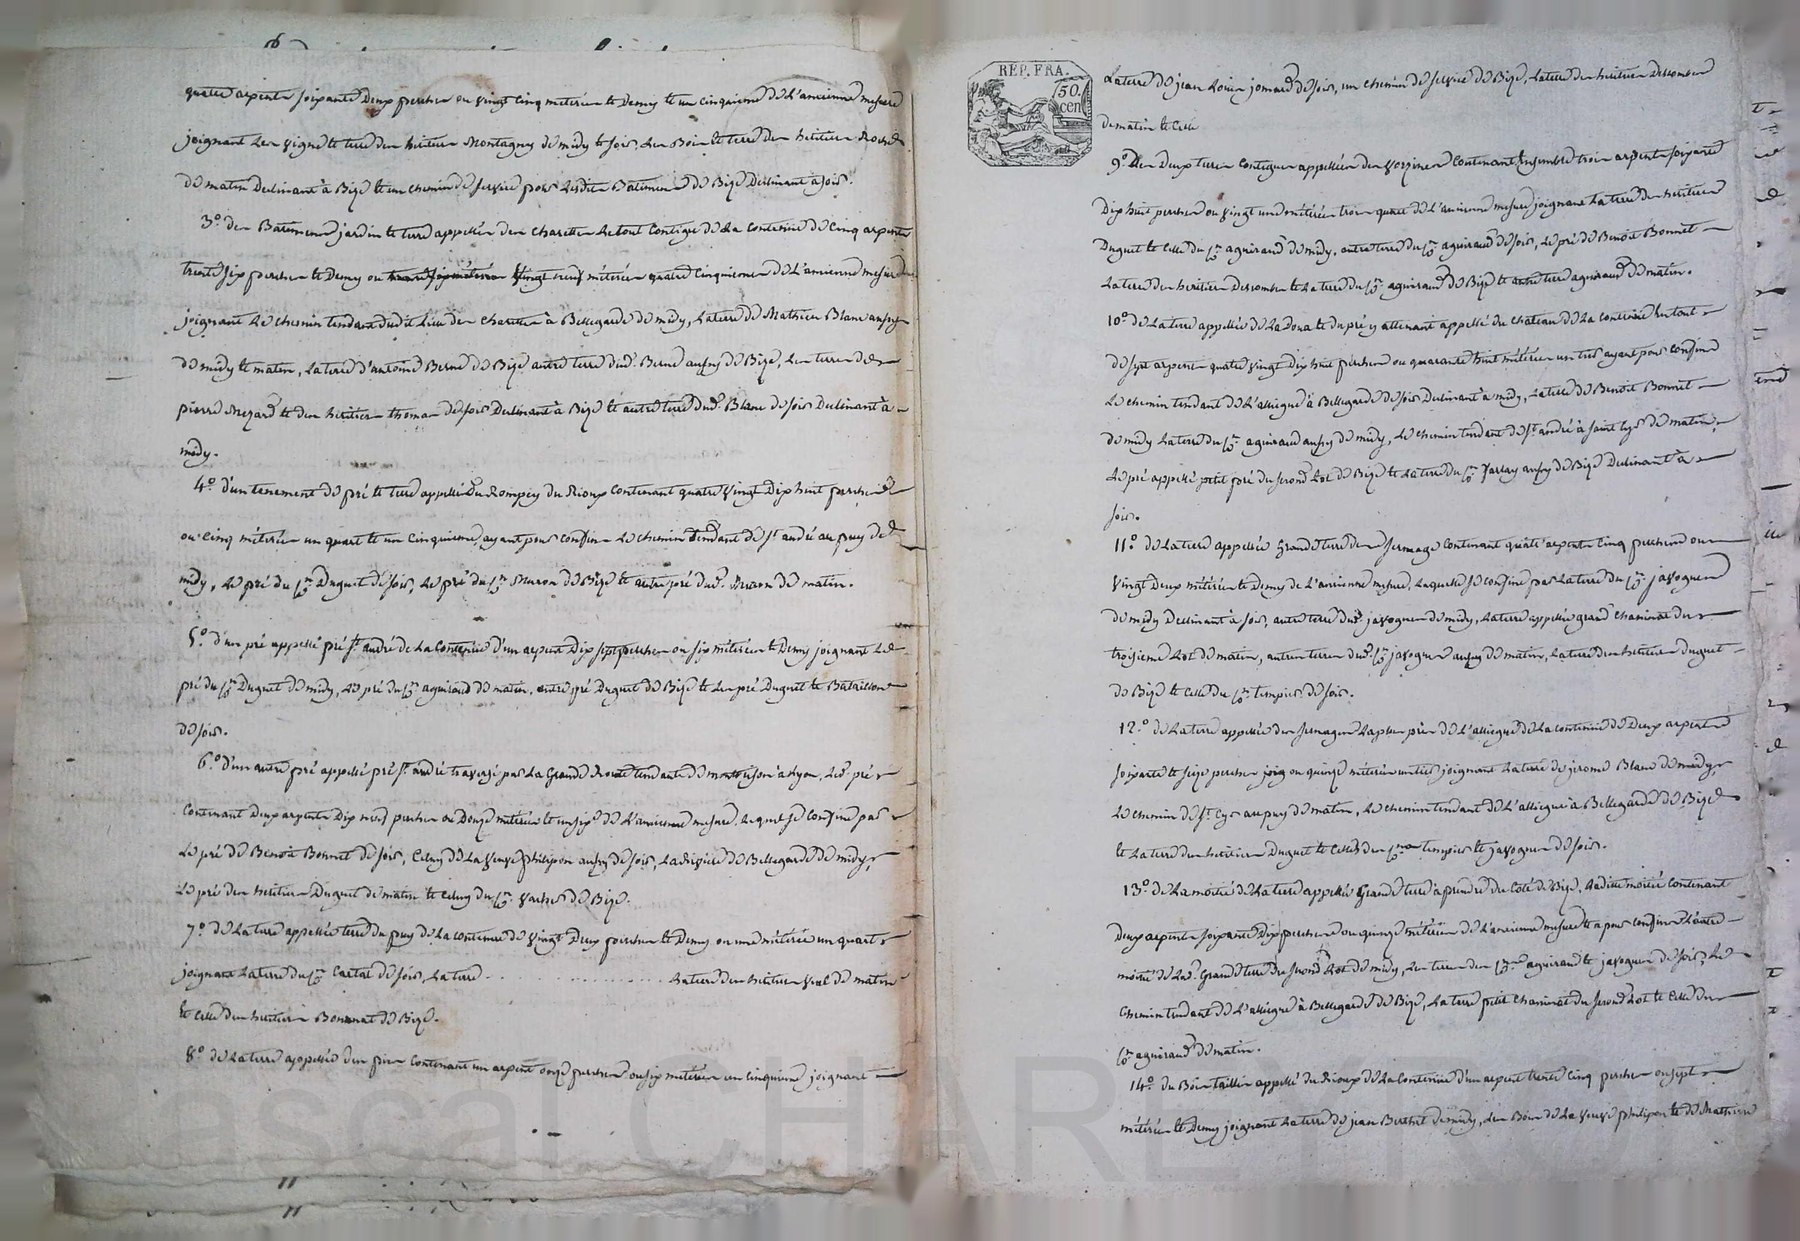 quatre arpents soixante Deux perches ou vingt cinq meterées et Demy et un cinquieme de L'ancienne mesure
joignant Les vigne et terre des heritiers Montagny de midy et soir, Les Bois et terre des heritiers
de matin Declinant à Bize et un chemin de service pour Lesdits Batimens de Bize Declinant à soir.
3.º des Batimens jardin et terre appellés des charettes Le tout contigu de La contenue de cinq arpents
trente six perches et Demy ou vingt neuf métérées quatre cinquiemes de L'ancienne mesure
joignant Le chemin tendant dudit Lieu des charettes à Bellegarde de midy, La terre de Mathieu Blanc aussy
de midy et matin, La terre d'antoine Berne de Bize autre terre dud. Berne aussy de Bize, Les terres de
pierre et des heritiers thomas de soir Declinant à Bize et autre terre dud. Blanc de soir Declinant à
midy.
4.º d'un tenement de pré et terre appellé Du Rompey du Rioux contenant quatre vingt Dix huit perches
ou cinq métérées un quart et un cinquieme, ayant pour confins Le chemin tendant de St. andré au puy de
midy, Le pré du Cen. Duguet de soir, Le pré du Cen. de Bize et autre pré dud. de matin.
5.º d'un pré appellé pré St. andré de La contenue d'un arpent Dix sept perches ou six métérées et Demy joignant Le
pré du Cen. Duguet de midy, Le pré du Cen. aguiraud de matin, autre pré Duguet de Bize et Les pré Duguet et Bataillon
de soir.
6.º d'un autre pré appellé pré St. andré traversé par La Grande Route tendante de montbrison à Lyon, Led. pré
contenant Deux arpents Dix neuf perches ou Douze métérées et un six.e de L'ancienne mesure, Lequel se confine par
Le pré de Benoit Bonnet de soir, Celuy de La Veuve philipon aussy de soir, La Riviere de Bellegarde de midy,
Le pré des heritiers Duguet de matin et Celuy du Cen. de Bize.
7.º de La terre appellée terre du puy de La contenue de vingt Deux perches et Demy ou une métérée un quart
joignant La terre du Cen. de soir, La terre . . . . . . . . . . La terre des heritiers vial de matin
et celle des heritiers Bonnat de Bize.
8.º de La terre appellée des pins contenant un arpent onze perches ou six métérées un cinquieme joignant
REP. FRA.
50. cen
La terre de jean Louis de soir, un chemin de service de Bize, La terre des heritiers Descombes
de matin et Celle
9.º Des Deux terres contigues appellées des Vorzines contenant Ensemble trois arpents soixante
Dix huit perches ou vingt une métérées trois quart de L'ancienne mesure joignant La terre des heritiers
Duguet et Celle du Cen. aguiraud de midy, autre terre du Cen. aguiraud de soir, Le pré de Benoit Bonnet
La terre des heritiers Descombes et La terre du Cen. aguiraud de Bize et terre aguiraud de matin.
10.º de La terre appellée de La Doua et du pré y attenant appellé du chateau de La contenue En tout
de sept arpents quatre vingt Dix huit perches ou quarante huit métérées un tiers ayant pour confins
Le chemin tendant de L'alliegue à Bellegarde de soir Declinant à midy, La terre de Benoit Bonnet
de midy La terre du Cen. aguiraud aussy de midy, Le chemin tendant de St. andré à saint Cyr de matin,
Le pré appellé petit pré du second Lot de Bize et La terre du Cen. aussy de Bize Declinant à
soir.
11.º de La terre appellée Grande terre des sermages contenant quatre arpents Cinq perches ou
vingt Deux métérées et Demy de L'ancienne mesure, Laquelle se confine par La terre du Cen. javogues
de midy Declinant à soir, autre terre dud. javogues de midy, La terre appellée grand chaninat du
troisieme Lot de matin, autres terres dud. Cen. javogues aussy de matin, La terre des heritiers Duguet
de Bize et Celle du Cen. tempier de soir.
12.º de La terre appellée des sermages La plus près de L'alliegue de La contenue de Deux arpents
soixante et seize perches ou quinze métérées un tiers joignant La terre de jerome Blanc de midy,
Le chemin de St. Cyr au puy de matin, Le chemin tendant de L'alliegue à Bellegarde de Bize
et La terre des heritiers Duguet et Celles des Cens. tempier et javogues de soir.
13.º de La moitié de La terre appellée Grande terre à prendre du Coté de Bize, Ladite moitié contenant
Deux arpents soixante Dix perches ou quinze métérées de L'ancienne mesure et a pour confins L'autre
moitié de Lad. Grande terre du second Lot de midy, Les terres des Cens. aguiraud et javogues de soir, Le
Chemin tendant de L'alliegue à Bellegarde de Bize, La terre petit Chaninat du second Lot et Celle du
Cen. aguiraud de matin.
14.º du Bois taillis appellé du Rioux de La contenue d'un arpent trente Cinq perches ou sept
métérées et Demy joignant La terre de jean Berthet de midy, Les Bois de La veuve philipon et de Mathieu